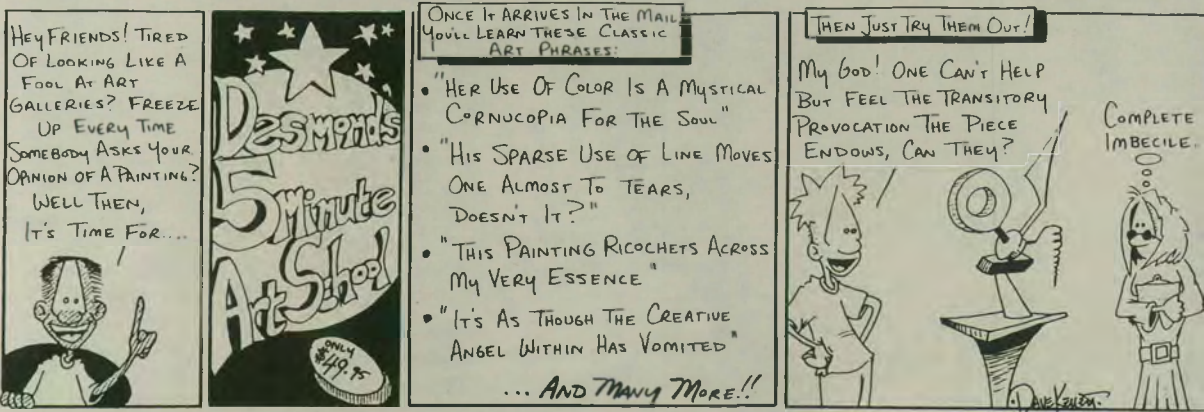 Hey Friends! Tired
Of Looking Like A
Fool At Art
Galleries? Freeze
Up Every Time
Somebody Asks Your
Opinion Of A Painting?
Well Then,
It's Time For....
Desmond's
5 Minute
Art School
Only
$49.95
Once It Arrives In The Mail
You'll Learn These Classic
Art Phrases:
• "Her Use Of Color Is A Mystical
Cornucopia For The Soul"
• "His Sparse Use Of Line Moves
One Almost To Tears,
Doesn't It?"
• "This Painting Ricochets Across
My Very Essence"
• "It's As Though The Creative
Angel Within Has Vomited"
... And Many More!!
Then Just Try Them Out!
My God! One Can't Help
But Feel The Transitory
Provocation The Piece
Endows, Can They?
Complete
Imbecile.
Dave